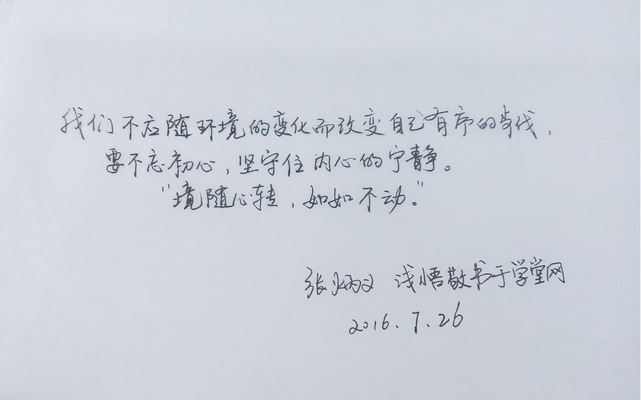 我们不应随环境的变化而改变自己有序的
要不忘初心，坚守住内心的宁静。
"境随心转，如如不动。"
张炳文 浅悟敬书于学堂网
2016.7.26